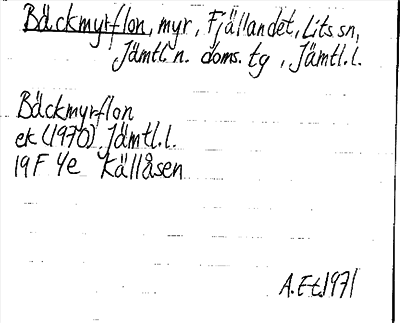 Bäckmyrflon, myr, Fjällandet, Lits sn,
Jämtl. n. doms. tg, Jämtl. l.
Bäckmyrflon
ek (1970) Jämtl. l.
19 F 4e Källåsen
A. Et. 1971